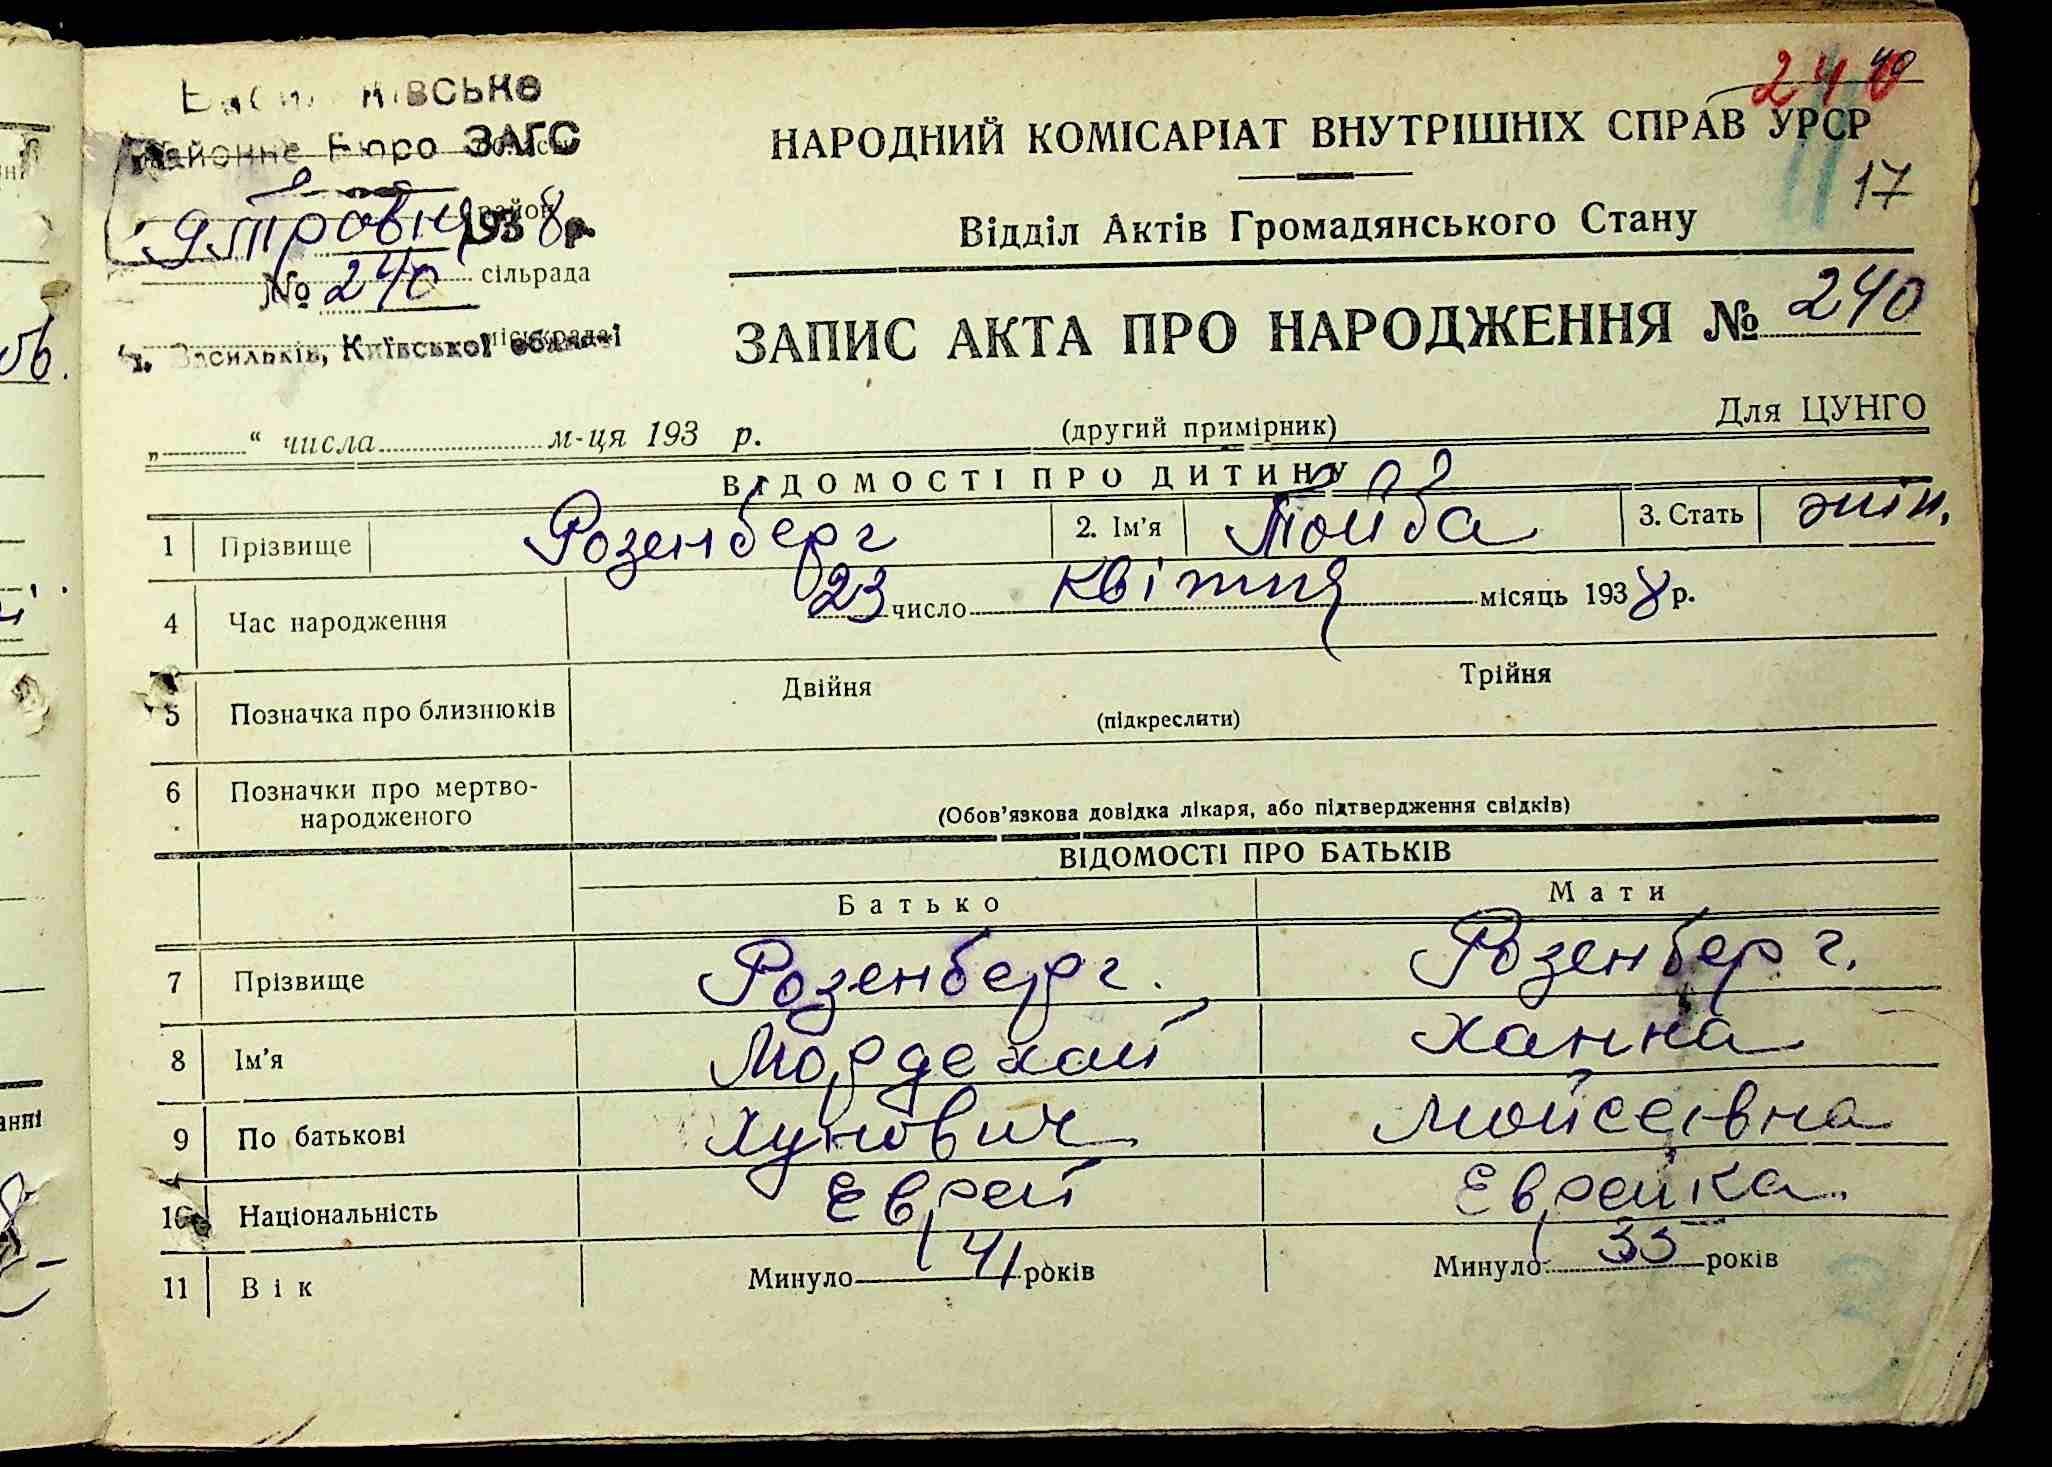 240
40
Районне Бюро ЗАГС
НАРОДНИЙ КОМІСАРІАТ ВНУТРІШНІХ СПРАВ УРСР
17
район
9 травня 1938 р.
Відділ Актів Громадянського Стану
№ 240 сільрада
м. Васильків, Київської області
ЗАПИС АКТА ПРО НАРОДЖЕННЯ № 240
Для ЦУНГО
„ “ числа м-ця 193 р. (другий примірник)
ВІДОМОСТІ ПРО ДИТИНУ
1 Прізвище Розенберг 2. Ім’я Пойба 3. Стать жін.
4 Час народження 23 число квітня місяць 1938 р.
5 Позначка про близнюків Двійня Трійня
(підкреслити)
6 Позначки про мертво-
народженого
(Обов’язкова довідка лікаря, або підтвердження свідків)
ВІДОМОСТІ ПРО БАТЬКІВ
Батько Мати
7 Прізвище Розенберг. Розенберг.
8 Ім’я Мордехай Ханна
9 По батькові Хунович Мойсеівна
10 Національність Еврей Еврейка
11 Вік Минуло 41 років Минуло 33 років